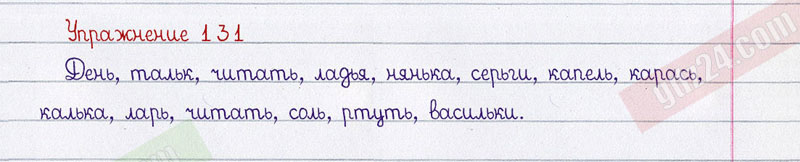 Упражнение 131
День, тальк, читать, ладья, нянька, серьги, капель, карась,
калька, ларь, читать, соль, ртуть, васильки.
gdz24.com